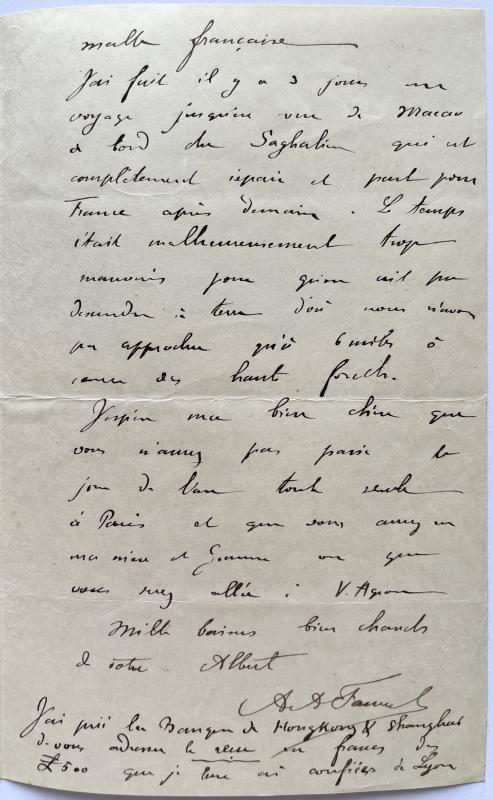 malle française
J'ai fait il y a 3 jours un
voyage jusqu'en vue de Macao
à bord du Saghalien qui est
complètement réparé et part pour
France après demain. Le temps
était malheureusement trop
mauvais pour qu'on ait pu
descendre à terre d'où nous n'avons
pu approcher qu'à 6 milles à
cause des haut fonds.
J'espère ma bien chère que
vous n'aurez pas passé le
jour de l'an toute seule
à Paris et que vous aurez eu
ma mère et ou que
vous serez allée à V.
Mille baisers bien chauds
de votre Albert
A. A.
J'ai prié la Banque de HongKong & Shanghai
de vous adresser le en francs des
£500 que je leur ai confiées de Lyon